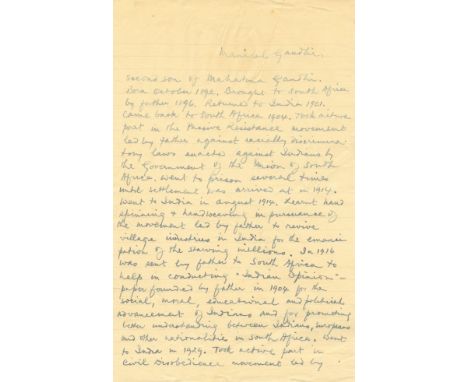 Manilal Gandhi.
Second son of Mahatma Gandhi.
Born October 1892. Brought to South Africa
by father 1896. Returned to India 1901.
Came back to South Africa 1904. Took active
part in the Passive Resistance movement
led by father against racially discrimina-
tory laws enacted against Indians by
the Government of the Union of South
Africa. Went to prison several times
until settlement was arrived at in 1914.
Went to India in August 1914. Learnt hand
spinning & handweaving in pursuance of
the movement led by father to revive
village industries in India for the emanci-
pation of the starving millions. In 1916
was sent by father to South Africa to
help in conducting "Indian Opinion" -
paper founded by father in 1904 for the
social, moral, educational and political
advancement of Indians and for promoting
better understanding between Indians, Europeans
and other nationalities in South Africa. Went
to India in 1929. Took active part in
Civil Disobedience movement led by